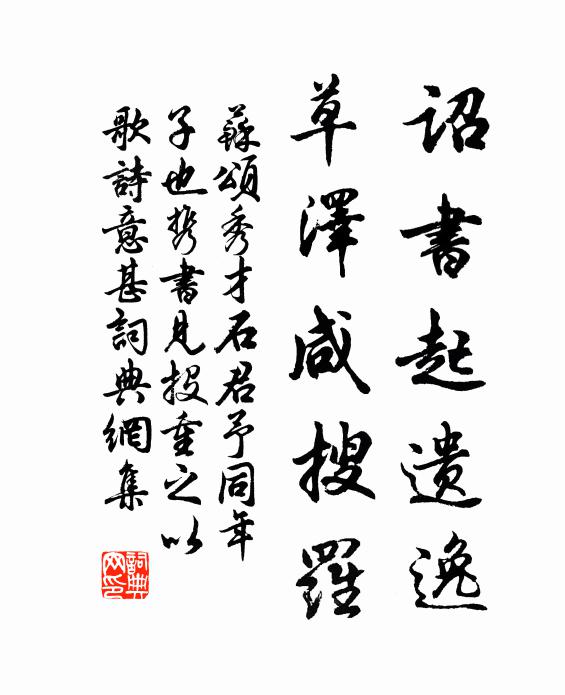 詔書起遺逸
草澤咸搜羅
蘇頌秀才石君予同年
子也携書見投重之以
歌詩意甚詞典網集
詞典网印